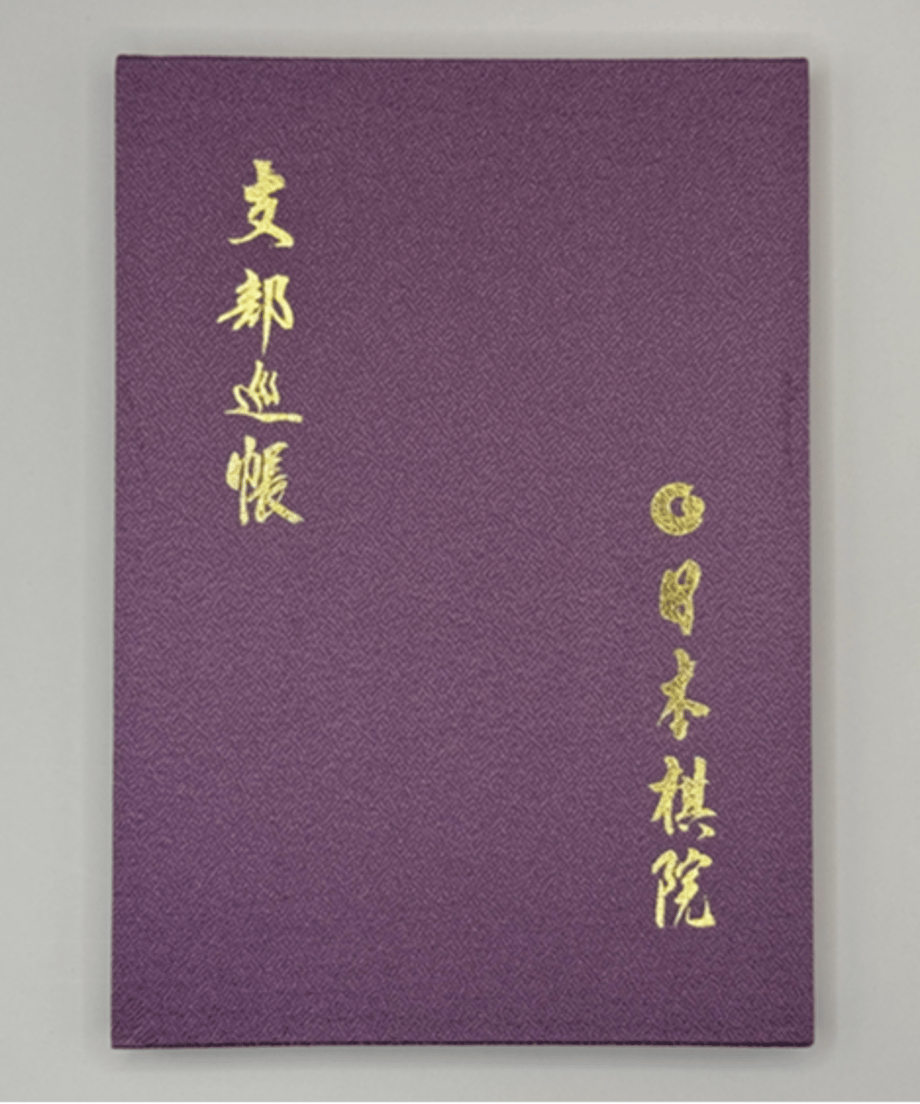 支部巡帳
日本棋院